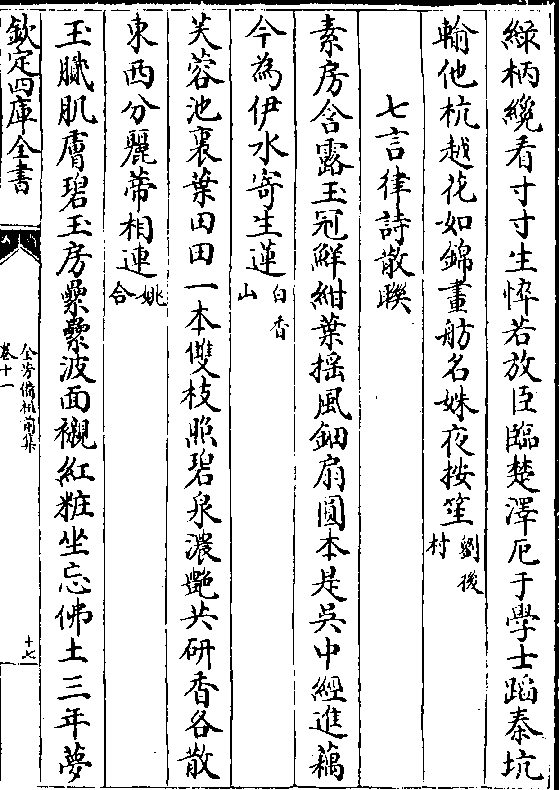 緑柄纔看寸寸生悴若放臣臨楚澤厄于學士蹈秦坑
輸他杭越花如錦畫舫名姝夜按笙劉後村
七言律詩散聯
素房含露玉冠鮮紺葉揺風鈿扇圓本是吳中經進藕
今為伊水寄生蓮白香山
芙蓉池裏葉田田一本雙枝照碧泉濃艶共妍香各散
東西分麗蒂相連姚合
玉膩肌膚碧玉房纍纍波面襯紅粧坐忘佛土三年夢
欽定四庫全書
全芳備祖前集
卷十一
十七